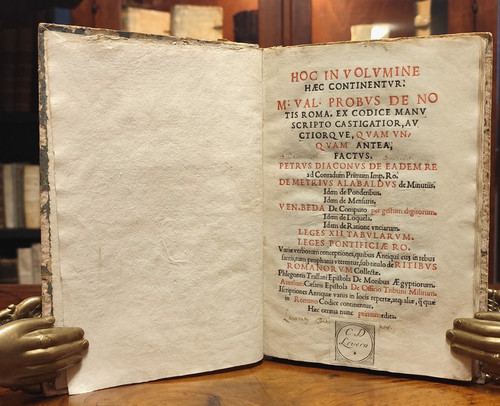 HOC IN VOLVMINE
HÆC CONTINENTVR:
M. VAL. PROBVS DE NO
TIS ROMA. EX CODICE MANV
SCRIPTO CASTIGATIOR, AV
CTIORQVE, QVAM VN,
QVAM ANTEA,
FACTVS.
PETRVS DIACONVS DE EADEM RE
ad Conradum Primum Imp. Ro.
DEMETRIVS ALABALDVS de Minutiis,
Idem de Ponderibus,
Idem de Mensuris,
VEN. BEDA De Computo per gestum digitorum.
Idem de Loquela.
Idem de Ratione vnciarum.
LEGES XII. TABVLARVM.
LEGES PONTIFICIÆ RO.
Variæ verborum conceptiones, quibus Antiqui cum in rebus
sacris, tum prophanis vterentur, sub titulo de RITIBVS
ROMANORVM Collectæ.
Phlegontis Tralliani Epistola De Moribus Ægyptiorum.
Aureliani Cæsaris Epistola De Officio Tribuni Militum.
Inscriptiones Antiquæ variis in locis repertæ, atq; aliæ, q̃ quæ
in Romano Codice continentur.
Hæc omnia nunc primum edita.
C D
Levera